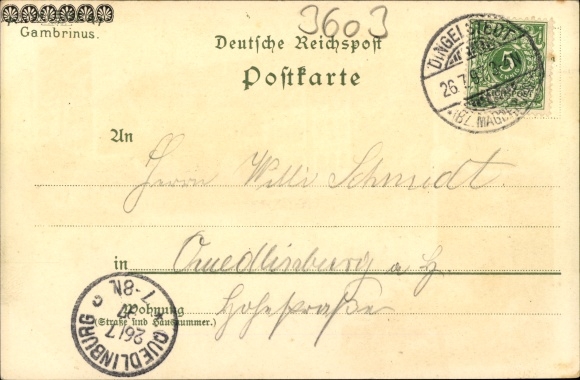 Gambrinus.
3603
Deutsche Reichspost
Postkarte
DINGELSTEDT
26.7.
(BZ. MAGDEBURG)
5
An
Herrn Willi Schmidt.
in Quedlinburg a. H.
Wohnung Hohestraße
(Straße und Hausnummer.)
QUEDLINBURG
26/7
97
7-8N.
c